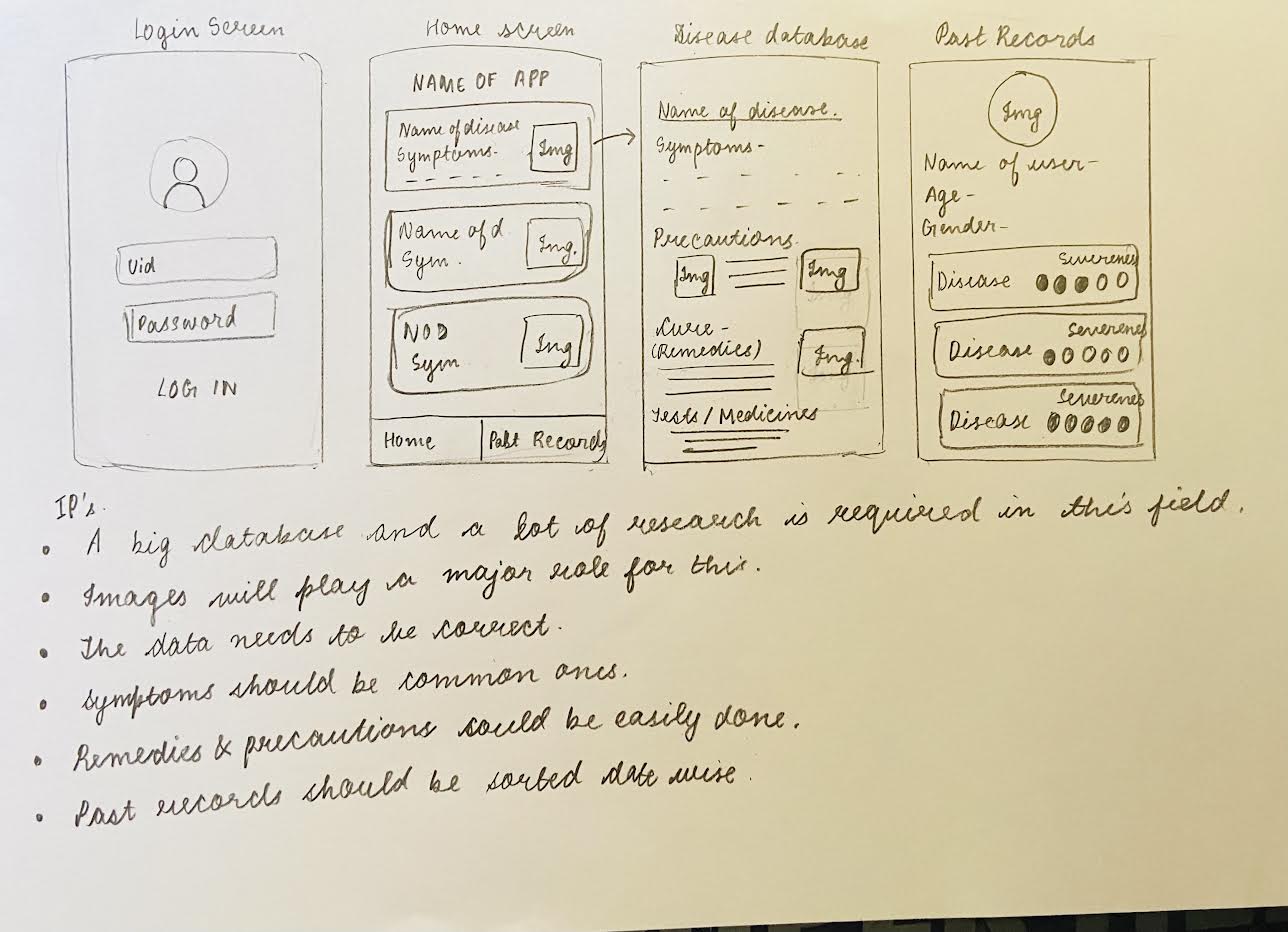 Login Screen
Uid
Password
LOG IN
Home screen
NAME OF APP
Name of disease
Symptoms-
Img
Name of d.
Sym.
Img.
NOD
Sym
Img
Home
Past Records
Disease database
Name of disease.
Symptoms-
Precautions.
Img
Img
Cure -
(Remedies)
Img.
Tests / Medicines
Past Records
Img
Name of user-
Age-
Gender-
Severenes
Disease
Severenes
Disease
Severenes
Disease
IP's.
• A big database and a lot of research is required in this field.
• Images will play a major role for this.
• The data needs to be correct.
• Symptoms should be common ones.
• Remedies & precautions could be easily done.
• Past records should be sorted date wise.